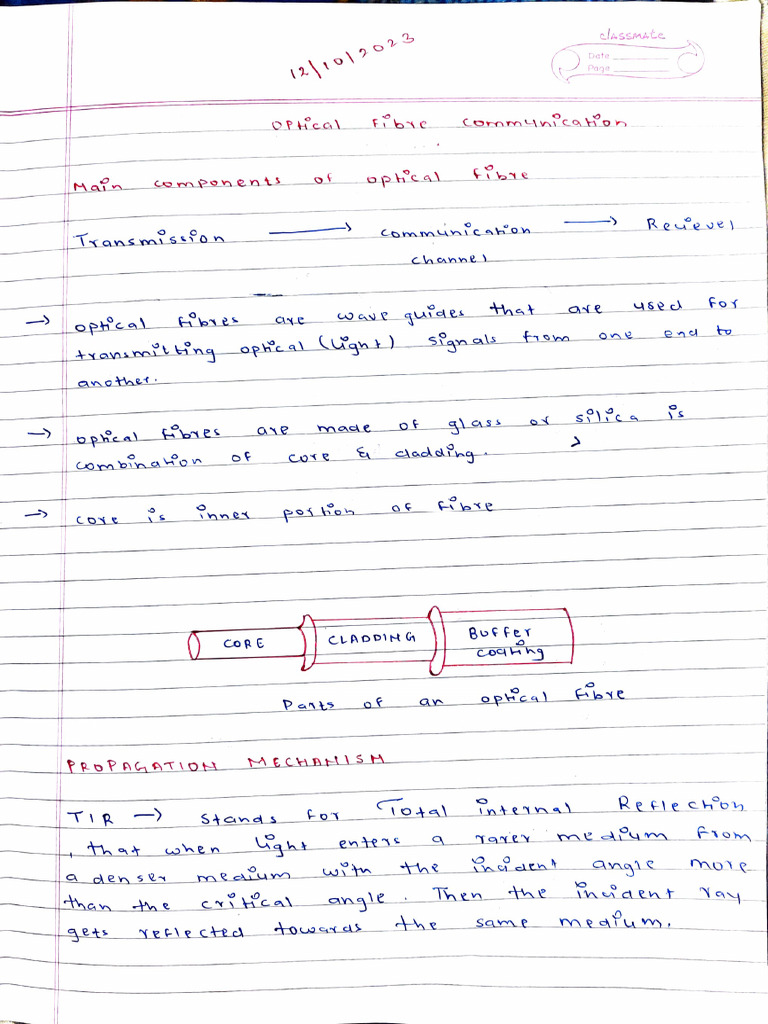 12/10/2023
classmate
Date
Page
Optical Fibre Communication
Main components of optical fibre
Transmission → communication → Recievel
channel
→ optical fibres are wave guides that are used for
transmitting optical (light) signals from one end to
another.
→ optical fibres are made of glass or silica is
combination of core & cladding.
→ core is inner portion of fibre
CORE CLADDING Buffer
coating
Parts of an optical fibre
PROPAGATION MECHANISM
TIR → stands for Total internal Reflection
, that when light enters a rarer medium from
a denser medium with the incident angle more
than the critical angle. Then the incident ray
gets reflected towards the same medium.